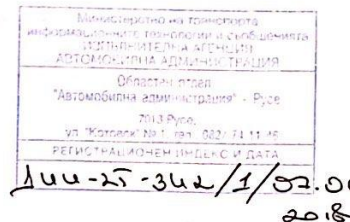 Министерство на транспорта
информационните технологии и съобщенията
ИЗПЪЛНИТЕЛНА АГЕНЦИЯ
АВТОМОБИЛНА АДМИНИСТРАЦИЯ
Областен отдел
"Автомобилна администрация" - Русе
7013 Русе,
ул. "Котовск" № 1 тел. 082/ 74 11 45
РЕГИСТРАЦИОНЕН ИНДЕКС И ДАТА
/1/02.0
2018